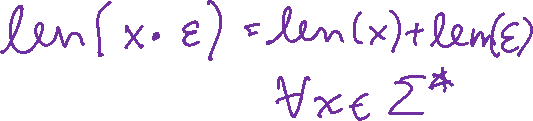 len(x·ε) = len(x)+len(ε)
∀x∈Σ*